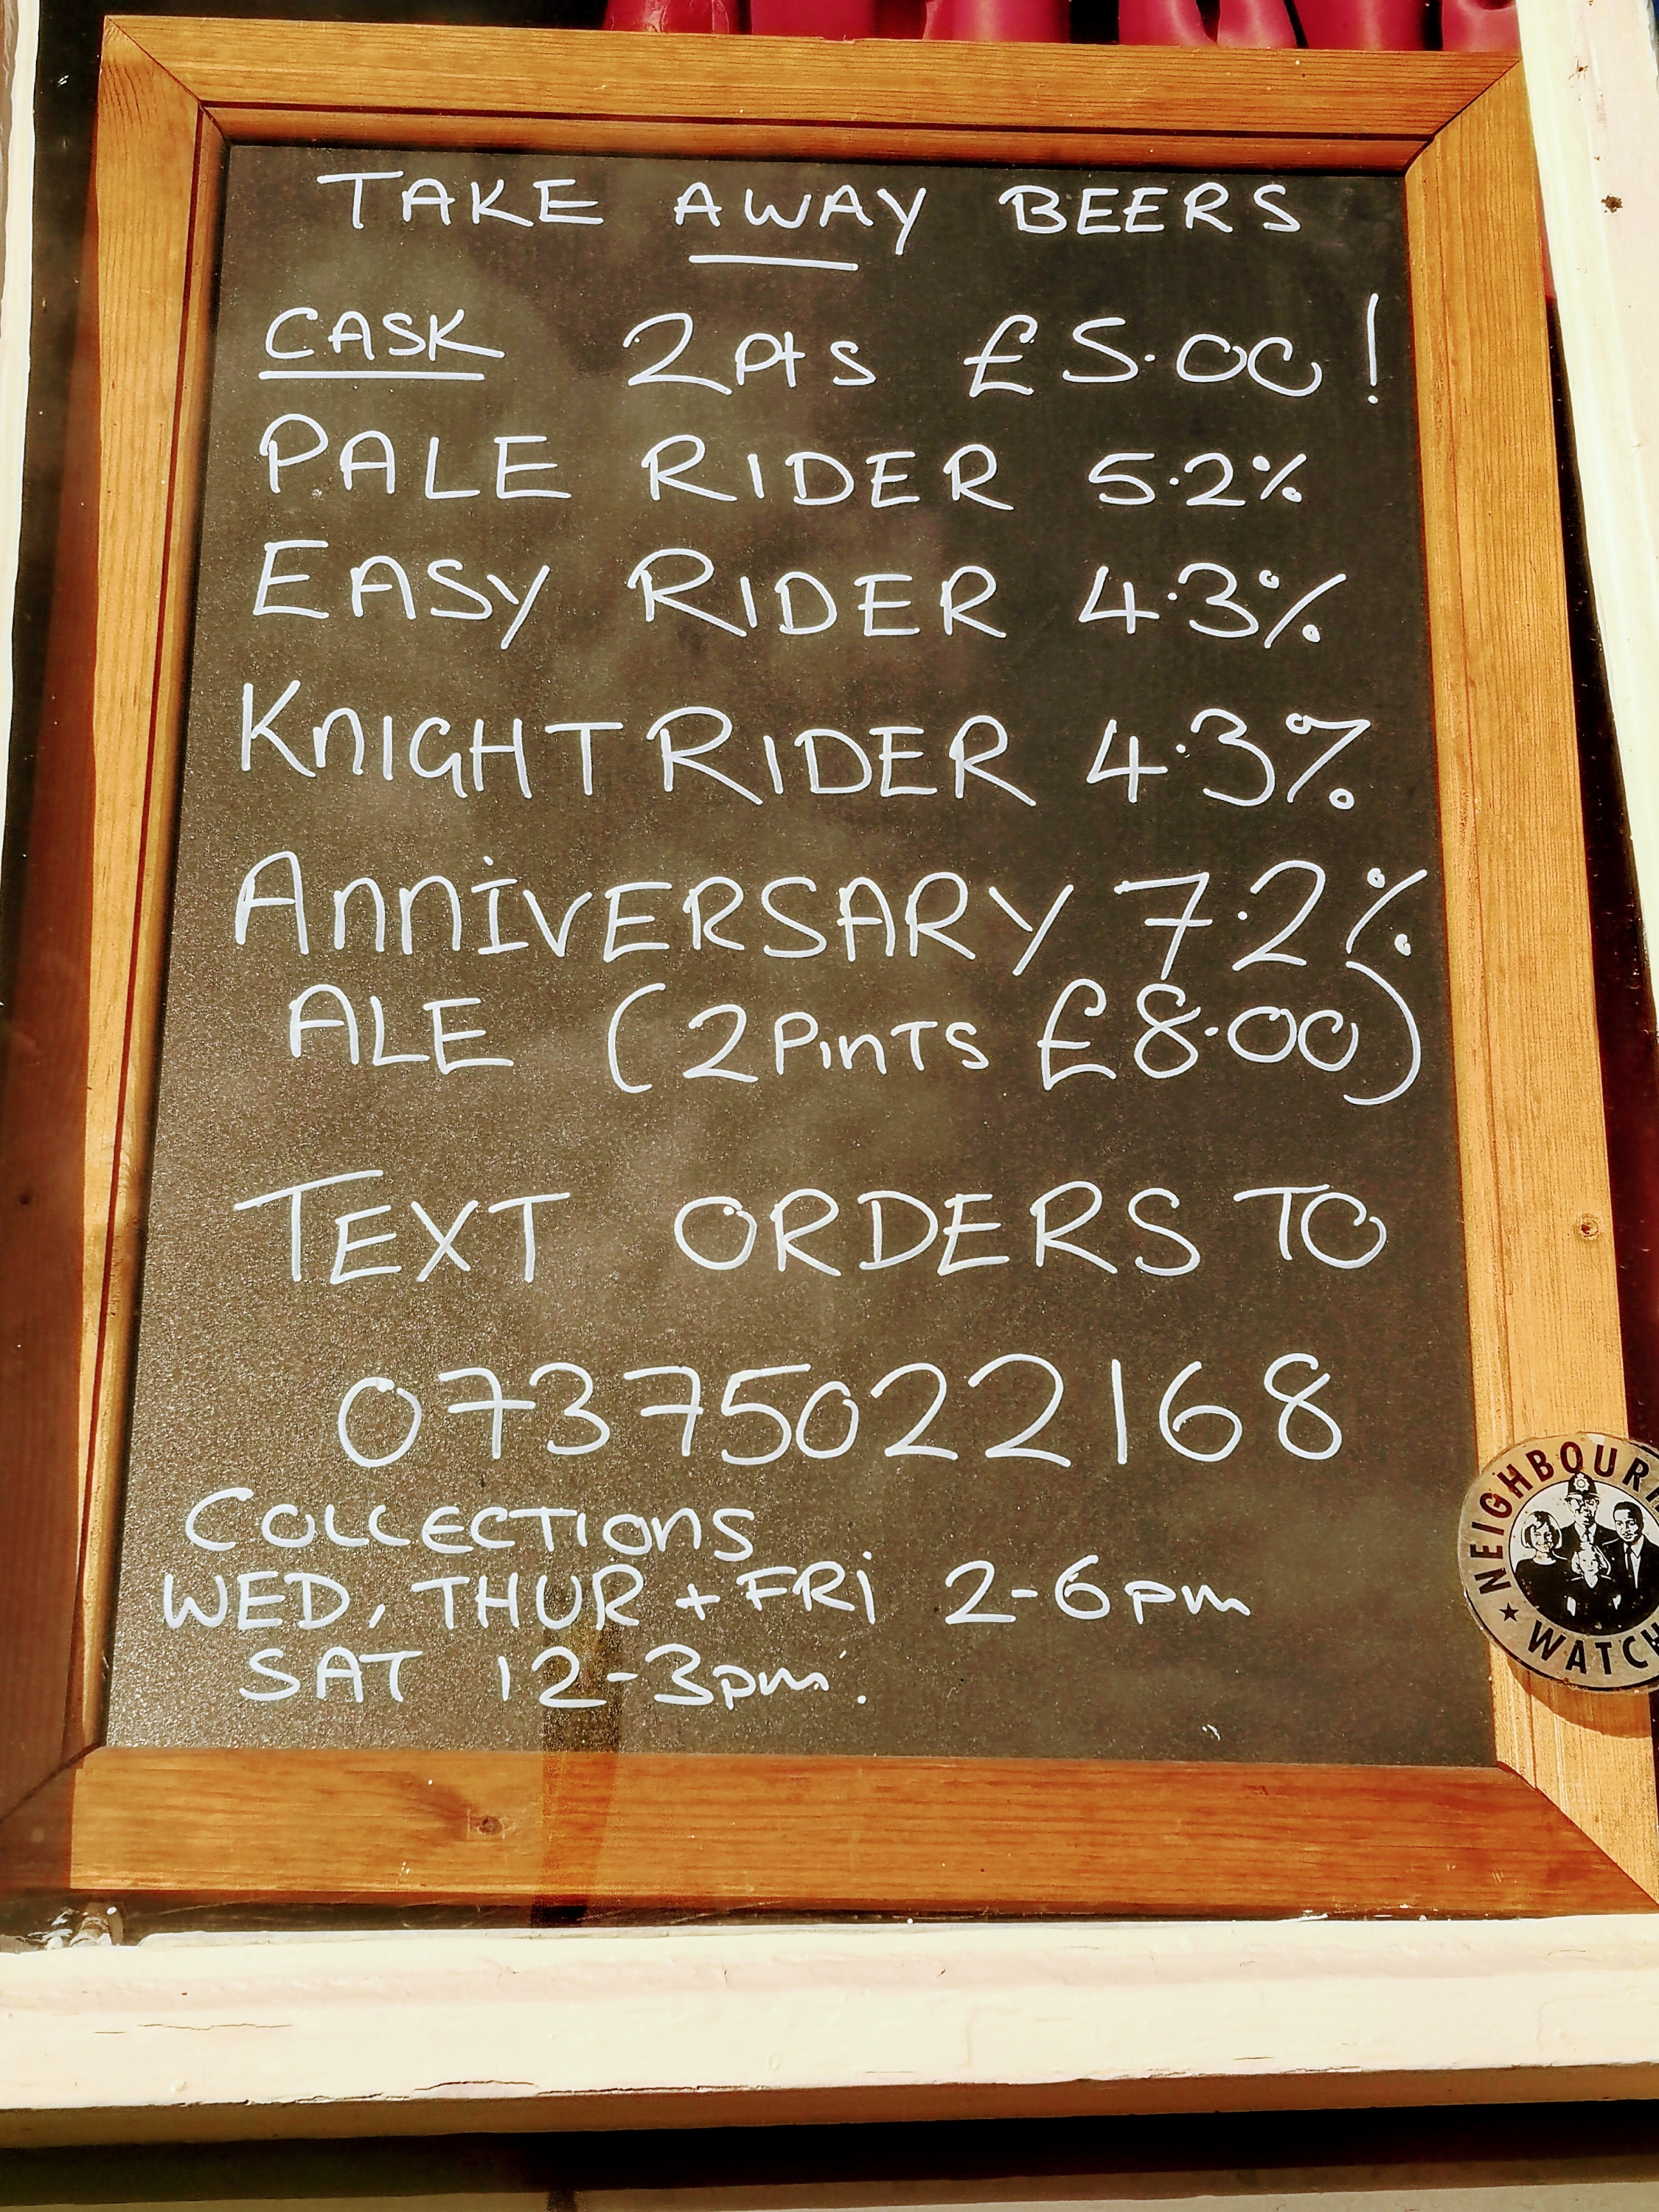 TAKE AWAY BEERS
CASK 2 Pts £5.00!
PALE RIDER 5.2%
EASY RIDER 4.3%
KnIGHT RIDER 4.3%
AnniVERSARY 7.2%
ALE (2 PinTS £8.00)
TEXT ORDERS TO
07375022168
COLLECTIOnS
WED, THUR + FRi 2-6pm
SAT 12-3pm.
NEIGHBOUR
WATCH